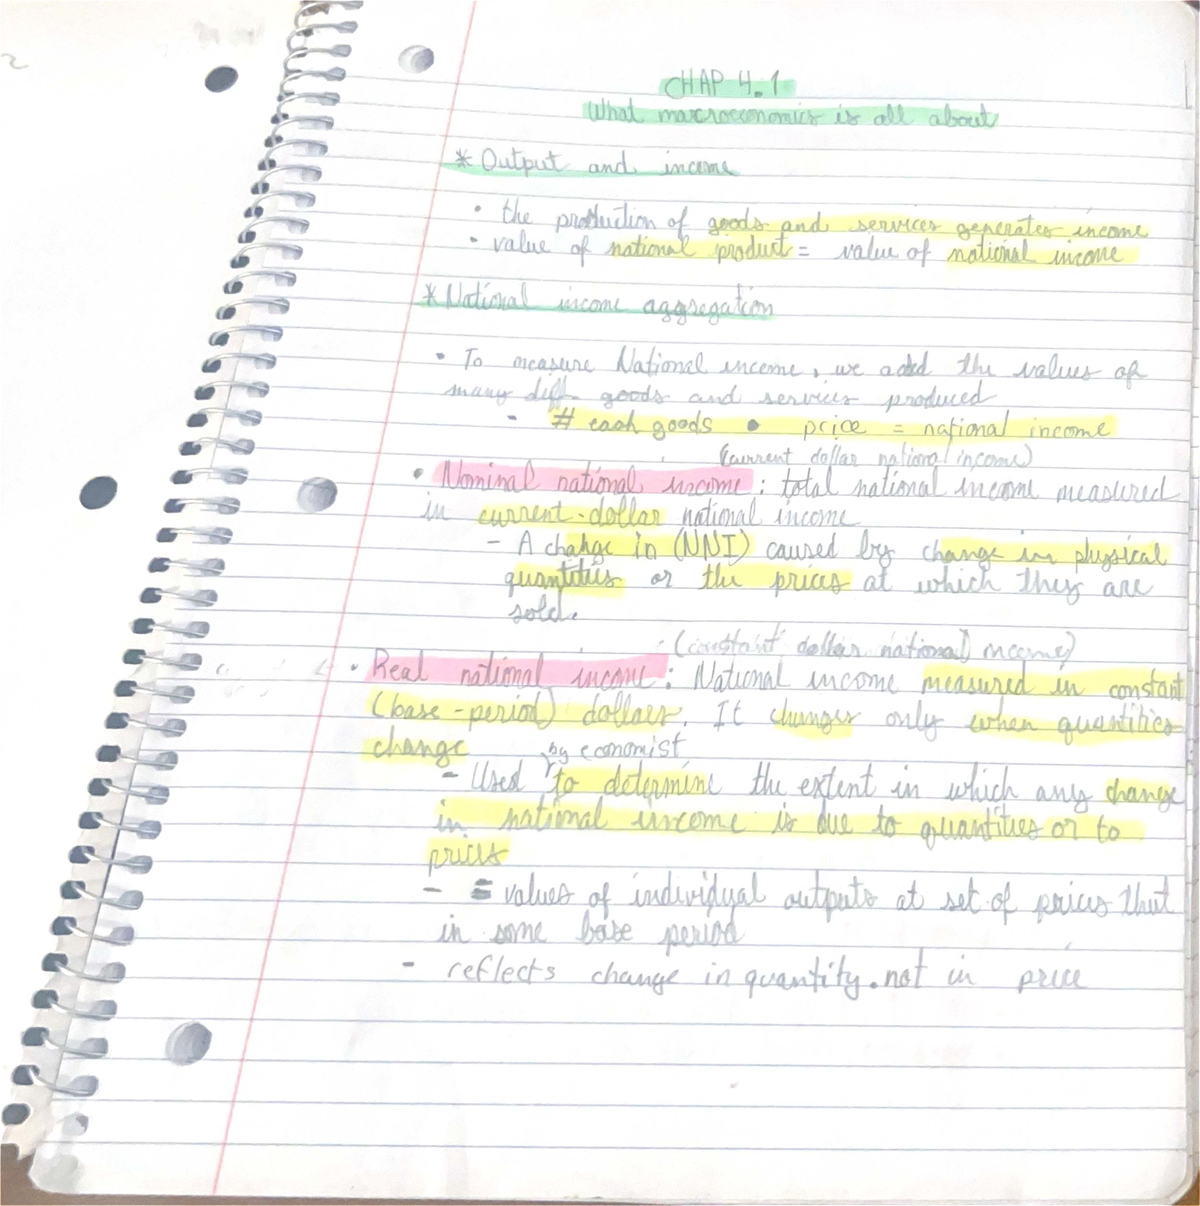 CHAP 4.1
What macroeconomics is all about
* Output and income
• the production of goods and services generates income
• value of national product = value of national income
* National income aggregation
• To measure National income, we add the values of
many diff goods and services produced
- # each goods • price = national income
(current dollar national income)
• Nominal national income : total national income measured
in current-dollar national income
- A change in (NNI) caused by change in physical
quantities or the prices at which they are
sold.
(constant dollar national income)
• Real national income : National income measured in constant
(base-period) dollars. It changes only when quantities
change
by economist
- Used to determine the extent in which any change
in national income is due to quantities or to
prices
- = values of individual outputs at set of prices that
in some base period
- reflects change in quantity. not in price